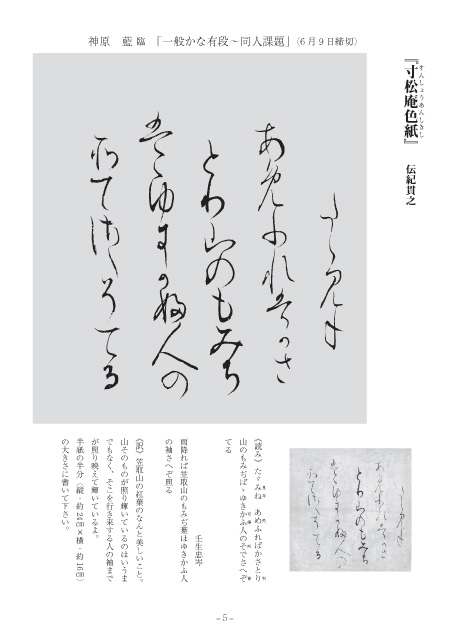 神原　藍 臨 「一般かな有段～同人課題」(6月9日締切)
『寸松庵色紙』 伝紀貫之
すんしょうあんしきし
たゞみね
あめふればかさ
とり山のもみち
はゝゆきかふ人の
そてさへそてる
《読み》たゞみね　あめふればかさとり
山のもみぢば、ゆきかふ人のそでさへぞ
てる
壬生忠岑
雨降れば笠取山のもみぢ葉はゆきかふ人
の袖さへぞ照る
《訳》笠取山の紅葉のなんと美しいこと。
山そのものが照り輝いているのはいうま
でもなく、そこを行き来する人の袖まで
が照り映えて輝いているよ。
半紙の半分（縦・約24㎝×横・約16㎝）
の大きさに書いて下さい。
~ 5 ~